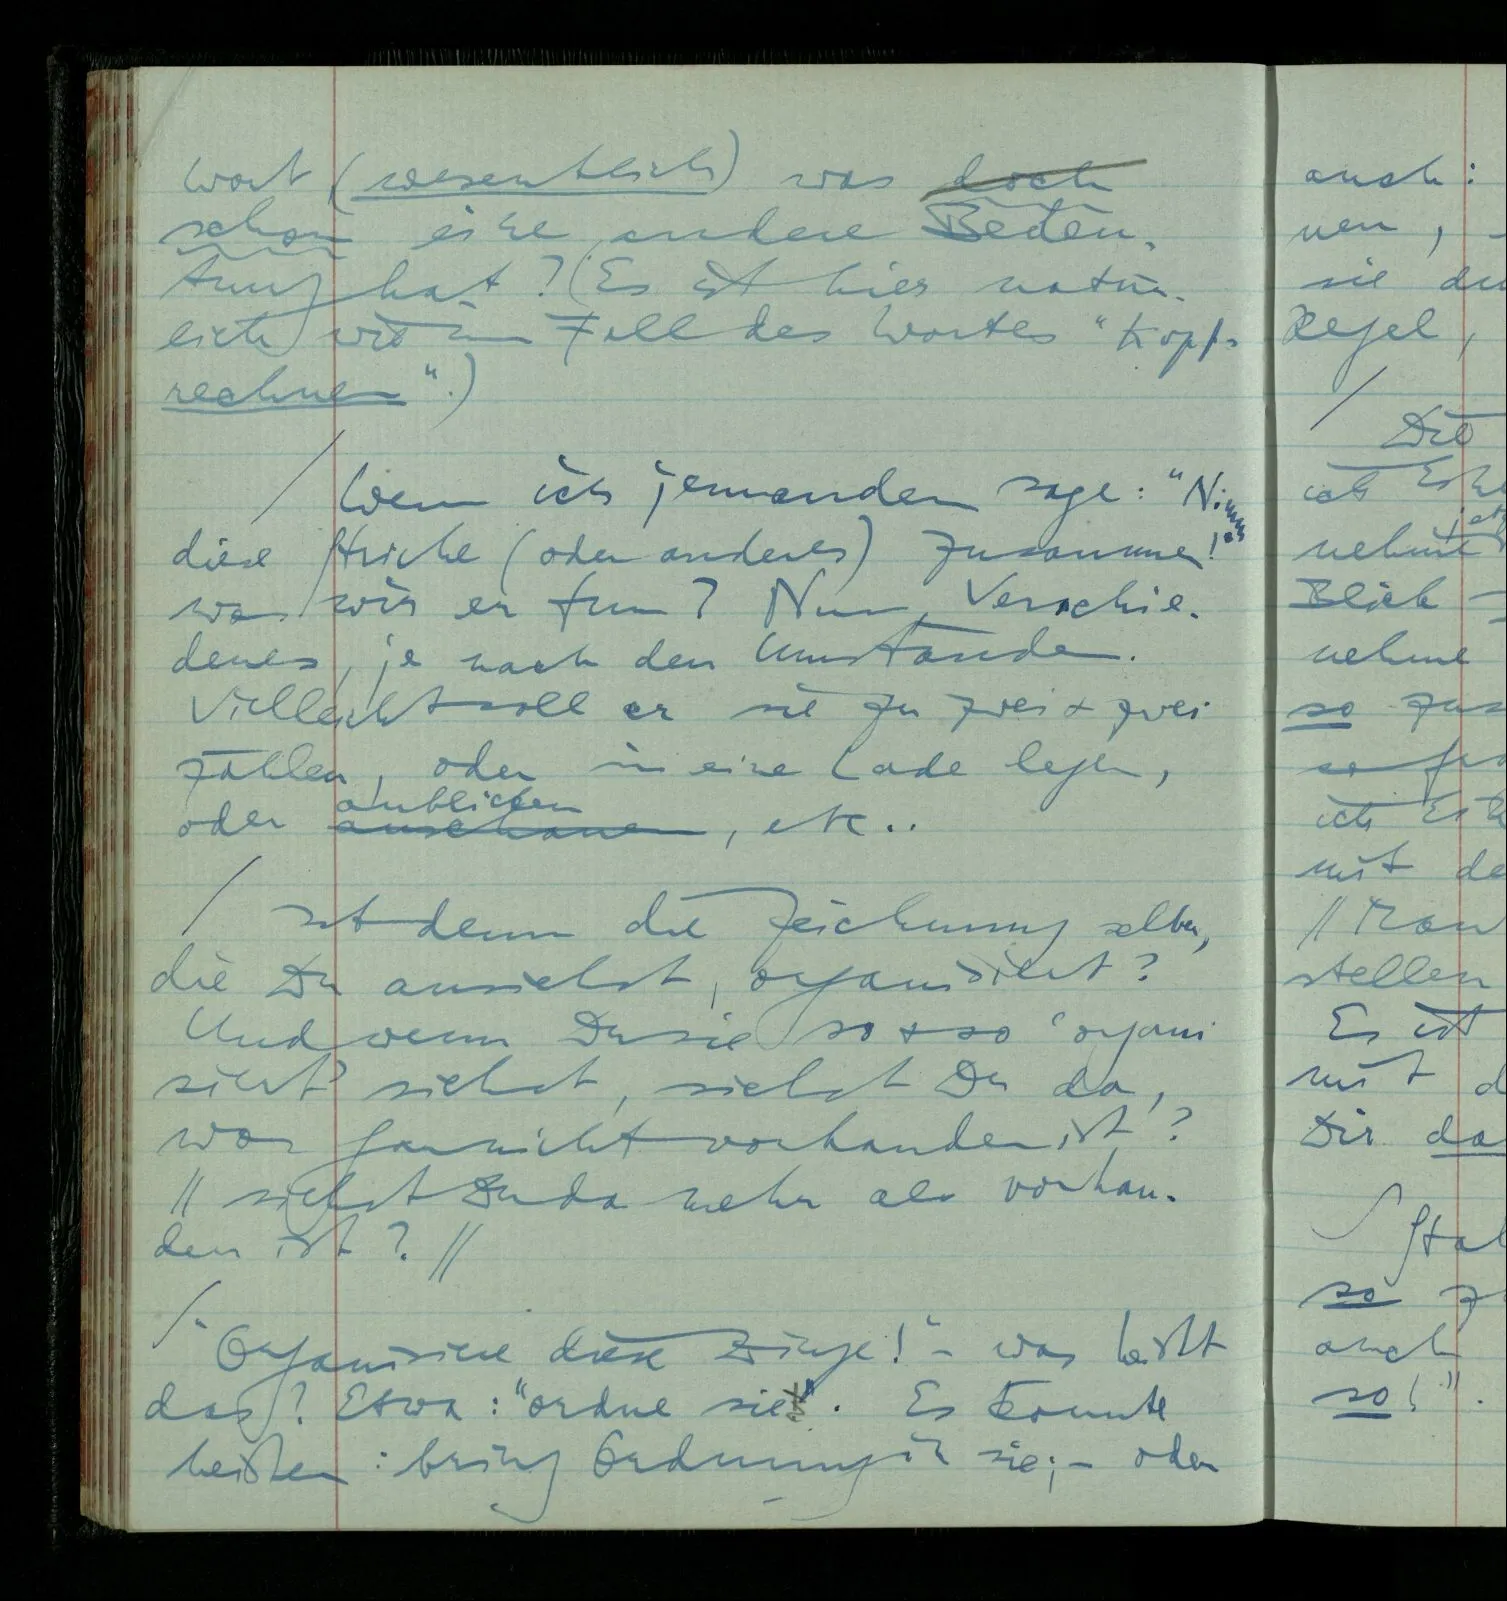 wort (wesentlich) was doch
schon eine andere Bedeu-
tung hat? (Es ist hier natür-
lich wie im Fall des Wortes "Kopf-
rechnen".)
/ Wenn ich jemandem sage: "Nimm
diese Striche (oder anderes) zusammen!"
was wird er tun? Nun, Verschie-
denes, je nach den Umständen.
Vielleicht soll er sie zu zwei + zwei
zählen, oder in eine Lade legen,
anblicken
oder anschauen, etc..
/ Ist denn die Zeichnung selber,
die Du ansiehst, organisiert?
Und wenn Du sie so + so 'organi
siert' siehst, siehst Du da,
was garnicht vorhanden ist?
// siehst Du da mehr als vorhan-
den ist? //
/ "Organisiere diese Dinge!" – was heißt
das? Etwa: "ordne sie". Es könnte
heißen: bring Ordnung in sie; – oder
auch:
nen,
sie
Regel,
/
Die
ich
nehme
Blick
nehme
so
ich
mit
// Man
stellen
Es ist
mit d
Dir da
so
auch
so!".